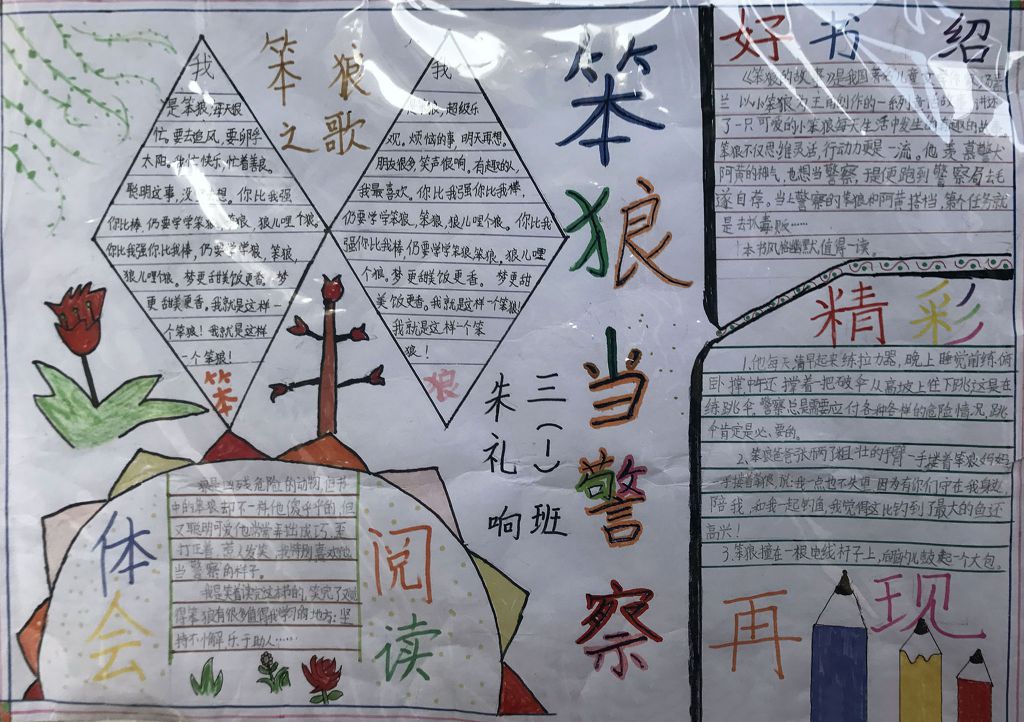 笨狼之歌
我
是笨狼,每天很
忙。要去追风,要孵乎
太阳。我忙快乐,忙着善良。
聪明这事,没想。你比我强
你比我棒,仍要学学笨狼,笨狼,狼儿哩个狼。
你比我强你比我棒,仍要学学狼,笨狼,
狼儿哩个狼。梦更甜美饭更香。梦
更甜美更香。我就是这样一
个笨狼!我就是这样
一个笨狼!
笨
我
是笨狼,超级乐
观。烦恼的事,明天再想。
朋友很多,笑声很响。有趣的人,
我最喜欢。你比我强你比我棒,
仍要学学笨狼,笨狼,狼儿哩个狼。你比我
强你比我棒,仍要学学笨狼笨狼,狼儿哩
个狼。梦更甜美饭更香。梦更甜
美饭更香。我就是这样一个笨狼!
我就是这样一个笨
狼!
狼
笨狼当警察
三(一)班
朱礼响
好书绍
《笨狼的故事》是我国著名儿童文学
兰以小笨狼为主角创作的一系列童话故事,讲述
了一只可爱的小笨狼每天生活中发生的有趣的故
笨狼不仅思维灵活,行动力更是一流。他羡慕警犬
阿黄的神气,也想当警察,于是便跑到警察局去毛
遂自荐。当上警察的笨狼和阿黄搭档,第个任务就
是去扒毒贩……
本书风格幽默,值得一读。
精彩
1.他每天清早起来练拉力器,晚上睡觉前练俯
卧撑中午还撑着一把破伞从高坡上往下跳这是在
练跳伞。警察总是需要应付各种各样的危险情况,跳
伞肯定是必要的。
2、笨狼爸爸张两了粗壮的手臂一手搂着笨狼妈妈
一手搂着笨狼,说:我一点也不失望。因为有你们守在我身边,
陪我,和我一起钓鱼,我觉得这比钓到了最大的鱼还
高兴!
3.笨狼撞在一根电线杆子上,后脑勺儿鼓起一个大包。
再现
体会
阅读
狼是凶残危险的动物,但书
中的笨狼却不一样他傻乎乎的,但
又聪明可爱他常常弄出成巧,歪
打正着,惹人发笑。我特别喜欢他
当警察的样子。
我是笑着读完这本书的,笑完了又觉
得笨狼有很多值得我学习的地方:坚
持不懈乐于助人……